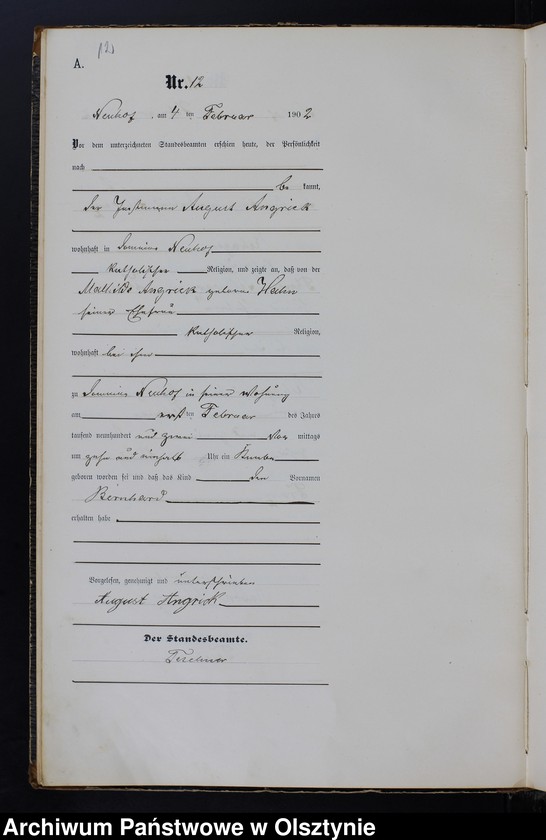 12
A.
Nr. 12
Neuhof, am 4 ten Februar 1902
Vor dem unterzeichneten Standesbeamten erschien heute, der Persönlichkeit
nach
be kannt,
der Instmann August Angrick
wohnhaft in Domaine Neuhof
katholischer Religion, und zeigte an, daß von der
Mathilde Angrick geborene Hahn
seiner Ehefrau
katholischer Religion,
wohnhaft bei ihm
zu Domaine Neuhof in seiner Wohnung
am ersten Februar des Jahres
tausend neunhundert und zwei Vor mittags
um zehn und einhalb Uhr ein Knabe
geboren worden sei und daß das Kind den Vornamen
Bernhard
erhalten habe.
Vorgelesen, genehmigt und unterschrieben
August Angrick
Der Standesbeamte.
Archiwum Państwowe w Olsztynie